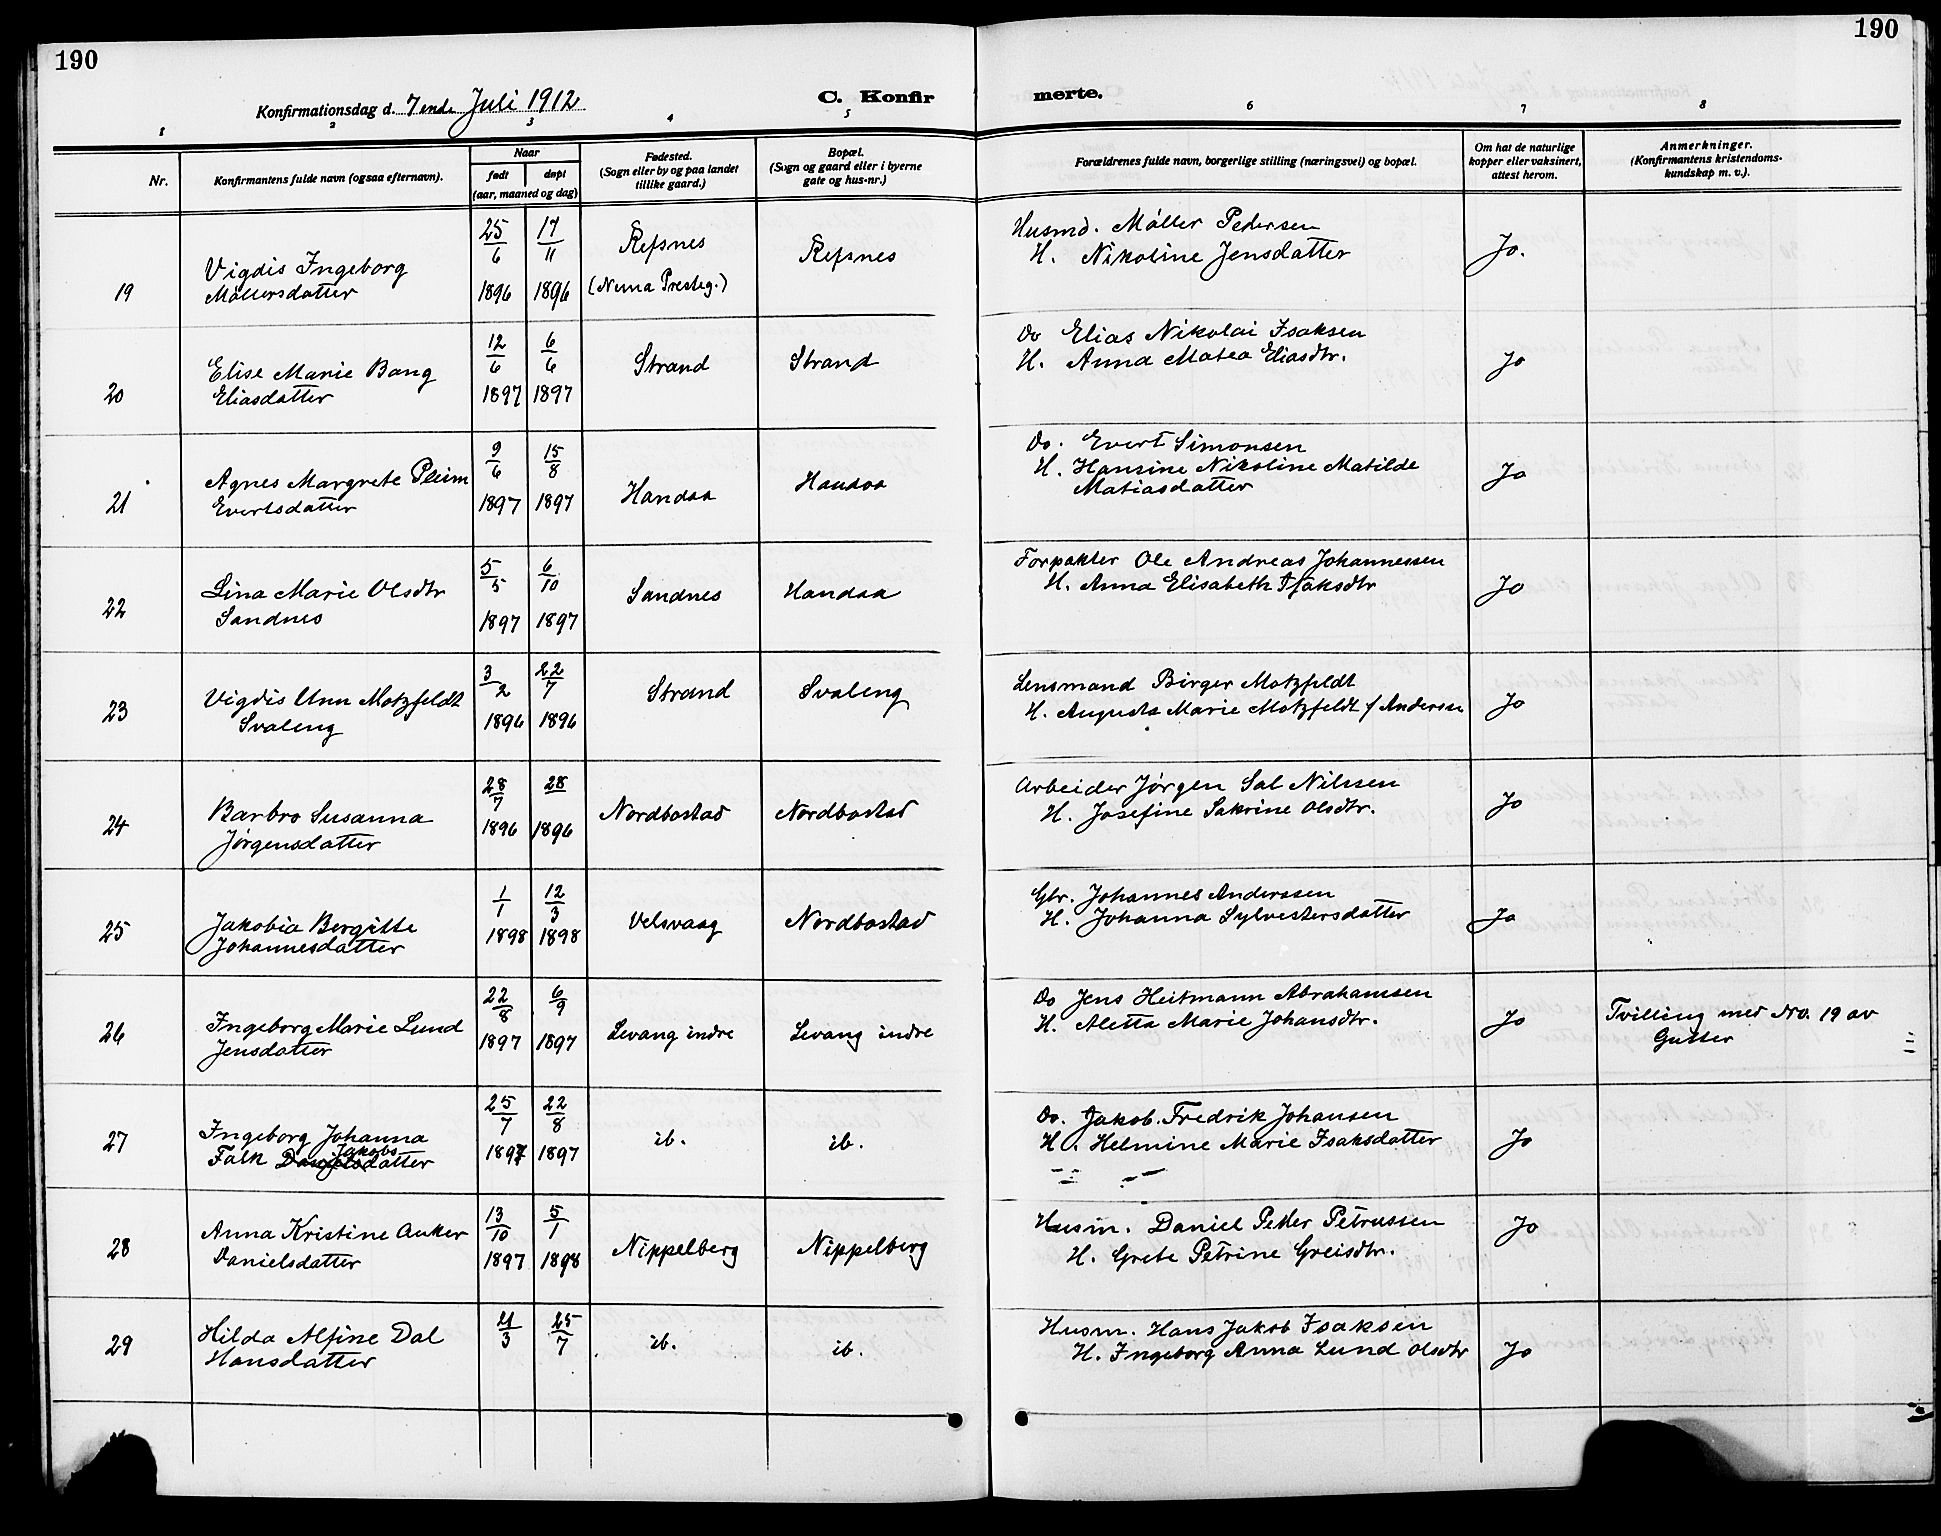 190
190
Konfirmationsdag d. 7ende Juli 1912
C. Konfir
merte.
1 2 3 4 5 6 7 8
Nr.
Konfirmantens fulde navn (ogsaa efternavn).
Naar
født døpt
(aar, maaned og dag)
Fødested.
(Sogn eller by og paa landet
tillike gaard.)
Bopæl.
(Sogn og gaard eller i byerne
gate og hus-nr.)
Forældrenes fulde navn, borgerlige stilling (næringsvei) og bopæl.
Om hat de naturlige
kopper eller vaksinert,
attest herom.
Anmerkninger.
(Konfirmantens kristendoms-
kundskap m. v.).
19
Vigdis Ingeborg
Møllersdatter
25/6 1896
17/11 1896
Refsnes
(Nema Presteg.)
Refsnes
Husmd. Møller Pedersen
H. Nikoline Jensdatter
Jo.
20
Elise Marie Bang
Eliasdatter
12/6 1897
6/6 1897
Strand
Strand
Do Elias Nikolai Isaksen
H. Anna Matea Eliasdtr.
Jo
21
Agnes Margrete Pleim
Evertsdatter
9/6 1897
15/8 1897
Handaa
Handaa
Do. Evert Simonsen
H. Hansine Nikoline Matilde
Matiasdatter
Jo
22
Lina Marie Olsdtr
Sandnes
5/5 1897
6/10 1897
Sandnes
Handaa
Forpakter Ole Andreas Johannessen
H. Anna Elisabeth Isaksdtr
Jo
23
Vigdis Unn Motzfeldt
Svaleng
3/2 1896
22/7 1896
Strand
Svaleng
Lensmand Birger Motzfeldt
H. Augusta Marie Motzfeldt f Andersen
Jo
24
Barbro Susanna
Jørgensdatter
28/7 1896
28 1896
Nordbostad
Nordbostad
Arbeider Jørgen Sal Nilssen
H. Josefine Sakrine Olsdtr.
Jo
25
Jakobia Bergitte
Johannesdatter
1/1 1898
12/3 1898
Velsvaag
Nordbostad
Gbr. Johannes Anderssen
H. Johanna Sylvestersdatter
Jo
26
Ingeborg Marie Lund
Jensdatter
22/8 1897
6/9 1897
Levang indre
Levang indre
Do Jens Heitmann Abrahamsen
H. Aletta Marie Johansdtr.
Jo
Tvilling med No. 19 av
Gutter
27
Ingeborg Johanna
Jakobs
Falk Danielsdatter
25/7 1897
22/8 1897
ib.
ib.
Do. Jakob Fredrik Johansen
H. Helmine Marie Isaksdatter
Jo
28
Anna Kristine Anker
Danielsdatter
13/10 1897
5/1 1898
Nippelberg
Nippelberg
Husm. Daniel Peder Petrussen
H. Grete Petrine Greisdtr.
Jo
29
Hilda Alfine Dal
Hansdatter
21/3
25/7
ib.
ib.
Husm. Hans Jakob Isaksen
H. Ingeborg Anna Lund Olsdtr
Jo